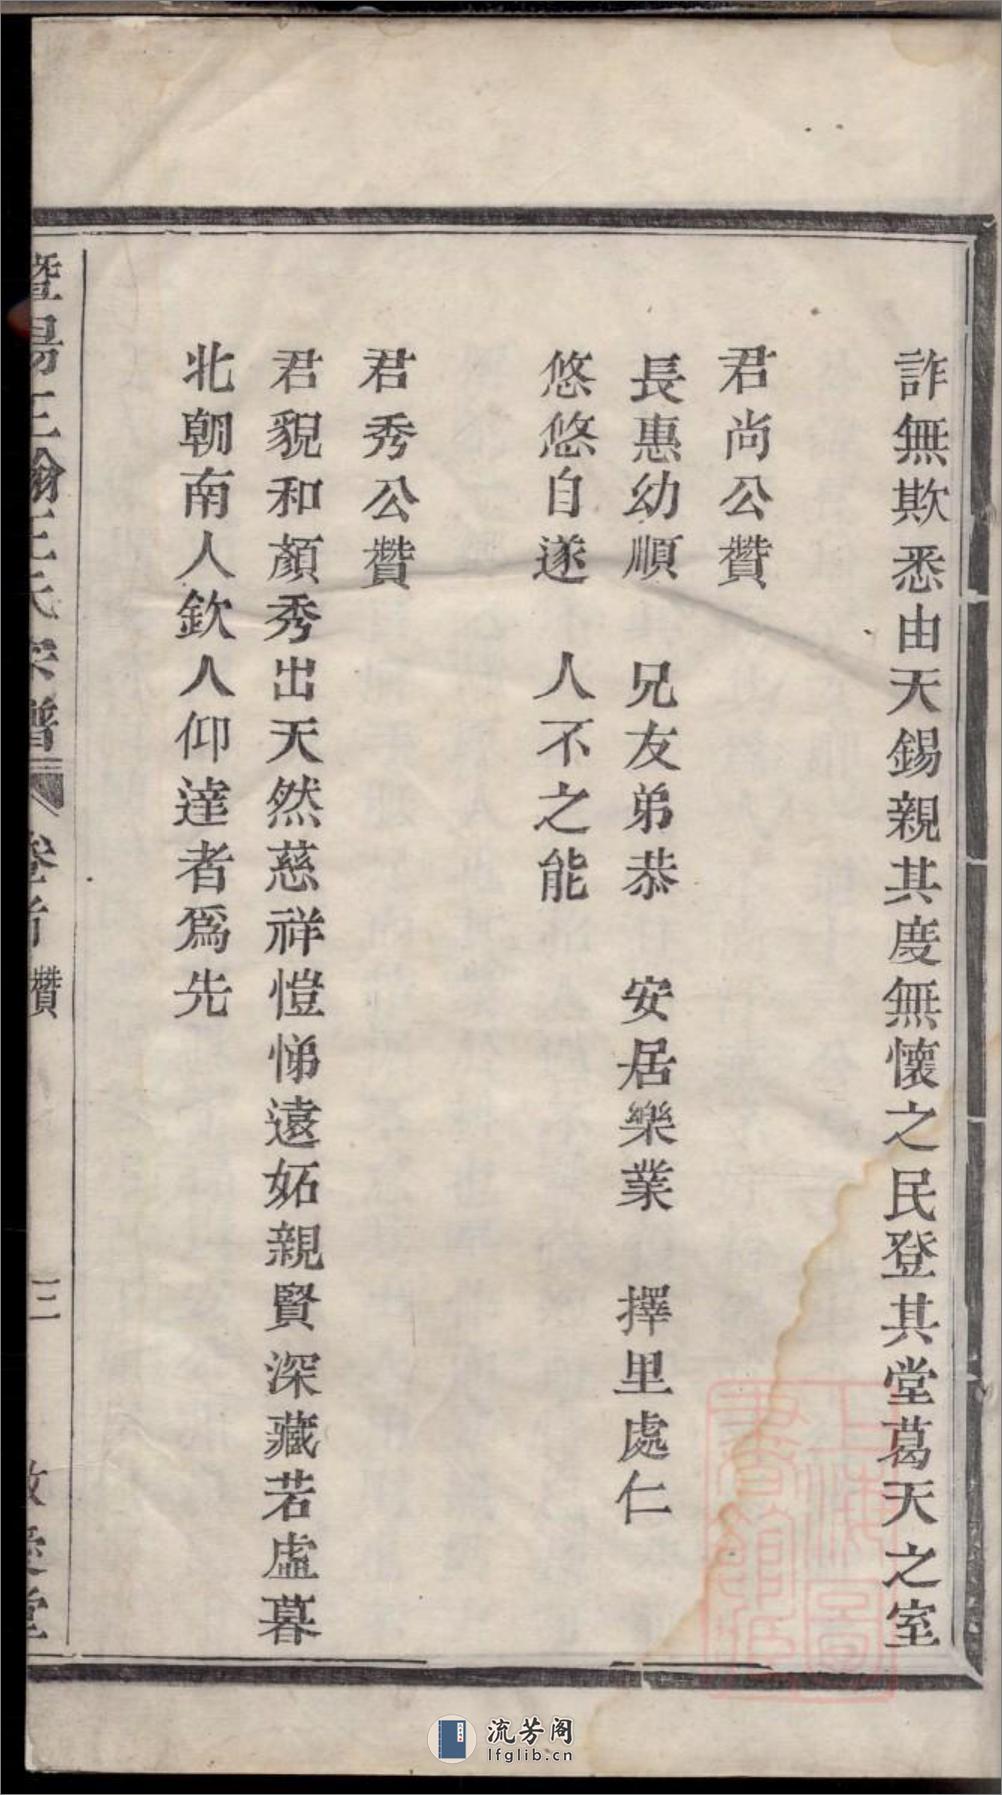 詐無欺悉由天錫親其度無懷之民登其堂葛天之室
君尚公贊
長惠幼順 兄友弟恭 安居樂業 擇里處仁
悠悠自遂 人不之能
君秀公贊
君貌和顏秀出天然慈祥愷悌遠妬親賢深藏若虛暮
北朝南人欽人仰達者爲先
暨陽王翰王氏宗譜 卷首 贊 三 敬愛堂
上海圖書館藏
流芳阁
lfglib.cn